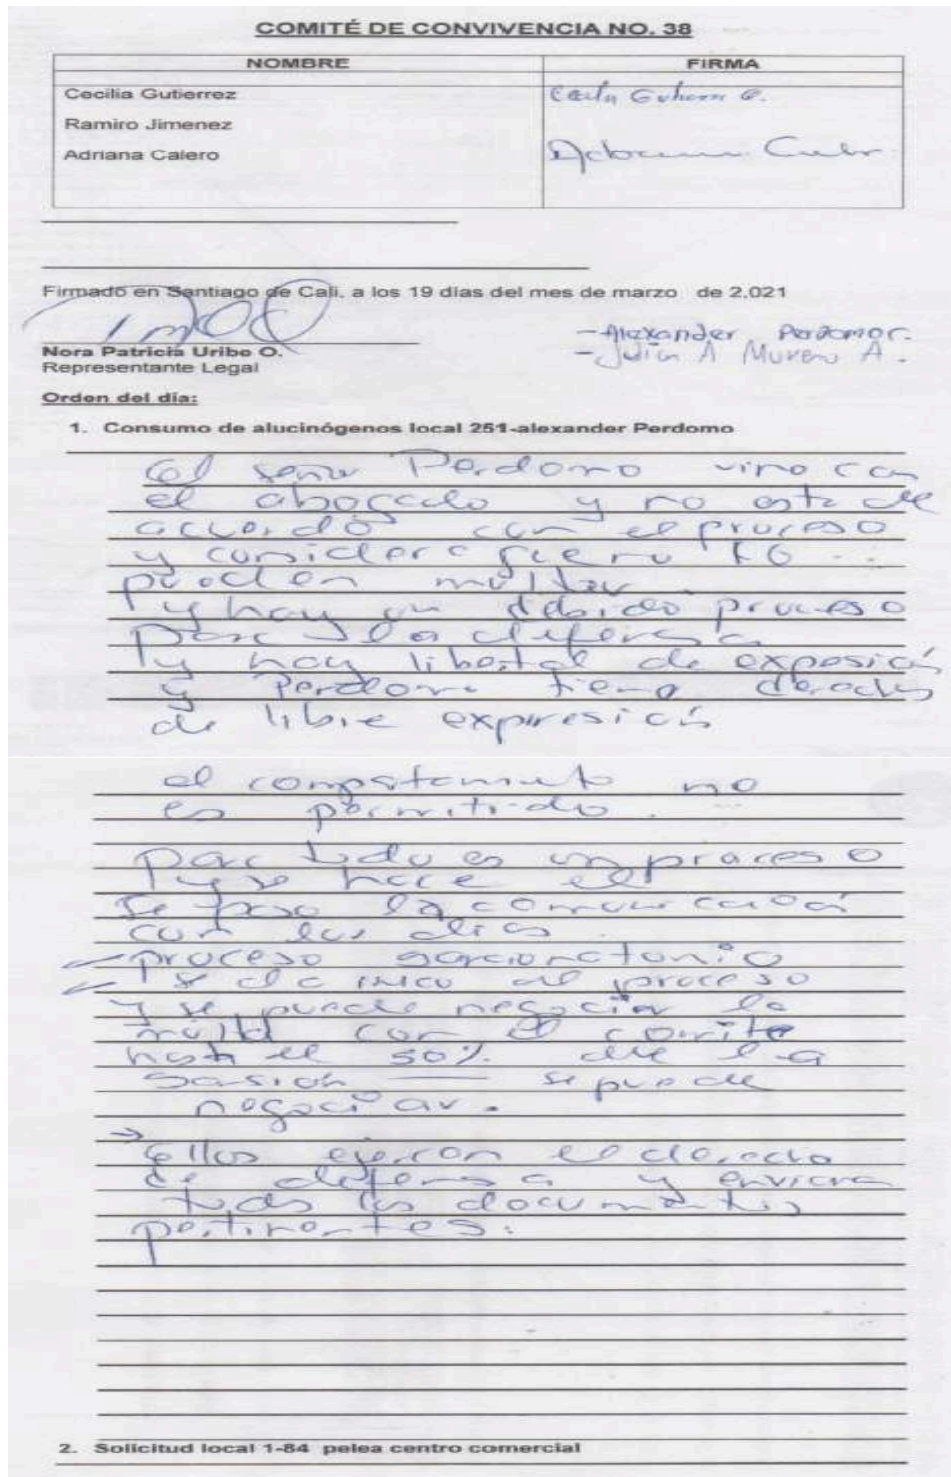 COMITÉ DE CONVIVENCIA NO. 38
NOMBRE FIRMA
Cecilia Gutierrez
Ramiro Jimenez
Adriana Calero
Firmado en Santiago de Cali, a los 19 días del mes de marzo de 2.021
Nora Patricia Uribe O.
Representante Legal
- Alexander Perdomo
- Julian A Moreno A.
Orden del día:
1. Consumo de alucinógenos local 251-alexander Perdomo
el señor Perdomo vino con
el abogado y no esta de
acuerdo con el proceso
y considera que no
pueden multar
y hay un debido proceso
para la defensa
y hay libertad de exposición
y Perdomo tiene derechos
de libre expresión
el comportamiento no
es permitido.
para todo es un proceso
y se hace el
se paso la comunicación
con los dias
proceso sancionatorio
se da inicio al proceso
y se puede negociar la
multa con el comite
hasta el 50% de la
sasión — se puede
negociar.
→
Ellos ejercen el derecho
de defensa y enviara
todos los documentos
pertinentes.
2. Solicitud local 1-84 pelea centro comercial